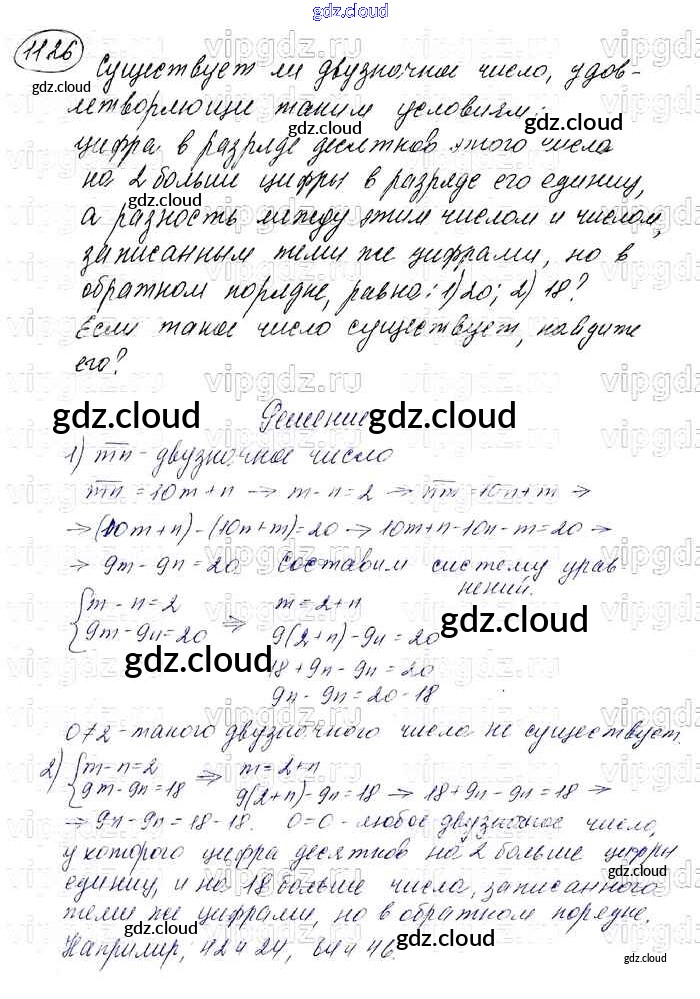 gdz.cloud
1126 Существует ли двузначное число, удов-
летворяющи таким условиям:
цифра в разряде десятков этого числа
на 2 больше цифры в разряде его единиц,
а разность между этим числом и числом,
записанным теми же цифрами, но в
обратном порядке, равна: 1) 20; 2) 18?
Если такое число существует, найдите
его?
Решение
1) mn - двузначное число
mn = 10m + n → m - n = 2 → nm = 10n + m →
→ (10m + n) - (10n + m) = 20 → 10m + n - 10n - m = 20 →
→ 9m - 9n = 20 Составим систему урав
нений.
{ m - n = 2 ⇒ m = 2 + n
9m - 9n = 20 9(2 + n) - 9n = 20
18 + 9n - 9n = 20
9n - 9n = 20 - 18
0 ≠ 2 - такого двузначного числа не существует.
2) { m - n = 2 ⇒ m = 2 + n
9m - 9n = 18 9(2 + n) - 9n = 18 → 18 + 9n - 9n = 18 →
→ 9n - 9n = 18 - 18. 0 = 0 - любое двузначное число,
у которого цифра десятков на 2 больше цифры
единиц, и на 18 больше числа, записанного
теми же цифрами, но в обратном порядке.
Например, 42 и 24, 64 и 46.
gdz.cloud